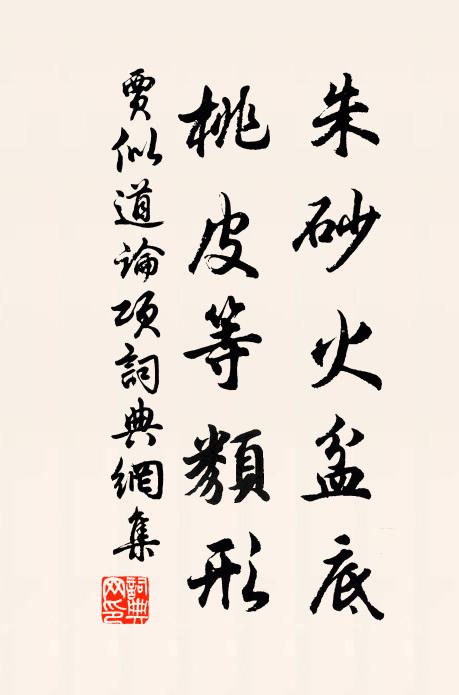 朱砂火盆底
桃皮等類形
賈似道論項詞典網集
詞典網印